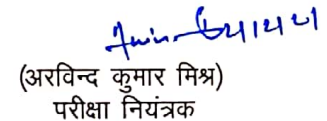 (अरविन्द कुमार मिश्र)
परीक्षा नियंत्रक